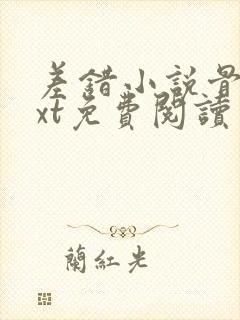 差錯小說骨
xt免費閱讀
蘭紅光